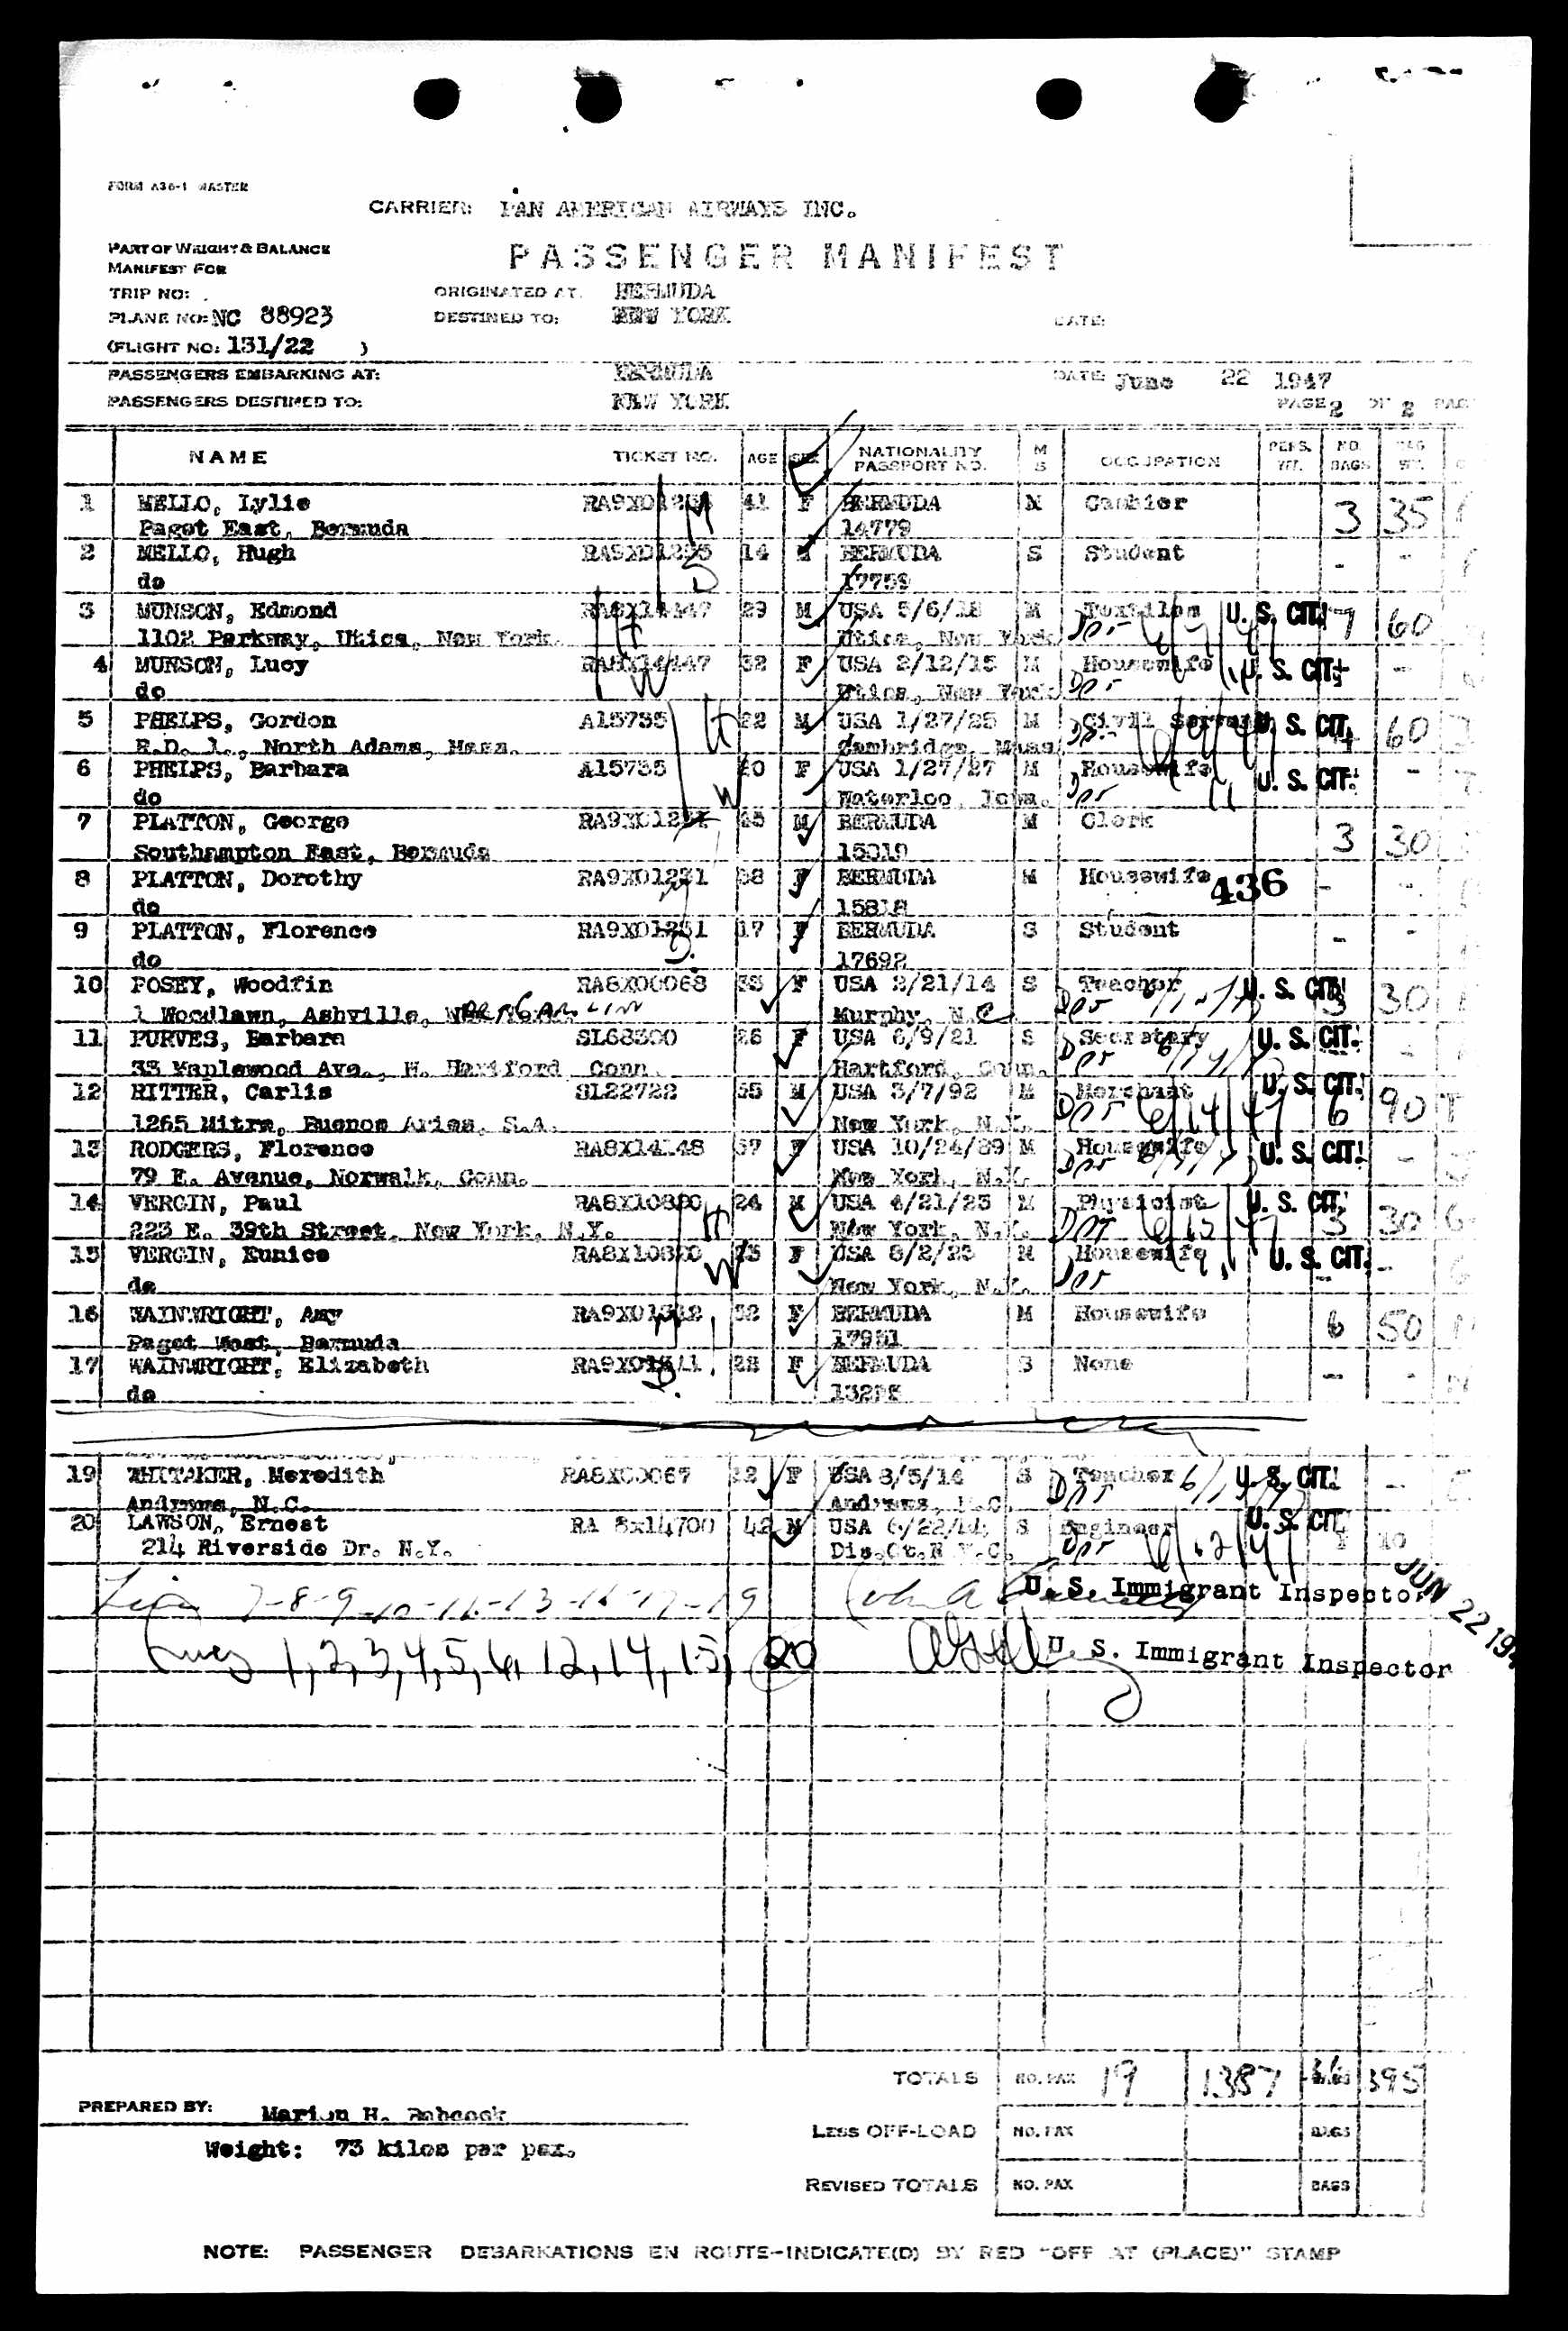 FORM A36-1 MASTER
CARRIER: PAN AMERICAN AIRWAYS INC.
PART OF WEIGHT & BALANCE
MANIFEST FOR
PASSENGER MANIFEST
TRIP NO: ORIGINATED AT: BERMUDA
PLANE NO: NC 88923 DESTINED TO: NEW YORK DATE:
(FLIGHT NO: 131/22 )
PASSENGERS EMBARKING AT: BERMUDA DATE: June 22 1947
PASSENGERS DESTINED TO: NEW YORK PAGE 2 OF 2
NAME TICKET NO. AGE SEX NATIONALITY PASSPORT NO. M S OCCUPATION PERS. WT. NO. BAGS BAG WT.
1 MELLO, Lylie 41 F BERMUDA M Cashier 3 35
Paget East, Bermuda 14779
2 MELLO, Hugh 14 M BERMUDA S Student - -
do 17759
3 MUNSON, Edmond 29 M USA 5/6/18 M Textiles U. S. CIT. 7 60
1102 Parkway, Utica, New York. Utica, New York
4 MUNSON, Lucy 32 F USA 2/12/15 M Housewife U. S. CIT. -
do Utica, New York
5 PHELPS, Gordon A15735 22 M USA 1/27/25 M Civil U. S. CIT. 60
R.D. 1., North Adams, Mass. Cambridge, Mass
6 PHELPS, Barbara A15735 20 F USA 1/27/27 M Housewife U. S. CIT. -
do Waterloo, Iowa.
7 PLATTON, George M BERMUDA M Clerk 3 30
Southampton East, Bermuda 15819
8 PLATTON, Dorothy RA9X01231 38 F BERMUDA M Housewife 436 - -
do 15818
9 PLATTON, Florence 17 F BERMUDA S Student - -
do 17692
10 POSEY, Woodfin RA8X00068 33 F USA 2/21/14 S Teacher U. S. CIT. 3 30
1 Woodlawn, Ashville, Murphy, N.C.
11 PURVES, Barbara SL68300 26 F USA 6/9/21 S Secretary U. S. CIT. - -
33 Maplewood Ave., W. Hartford Conn. Hartford, Conn.
12 RITTER, Carlis SL22722 55 M USA 3/7/92 M Merchant U. S. CIT. 6 90 T
1265 Mitre, Buenos Aries, S.A. New York, N.Y. 6/14/47
13 RODGERS, Florence RA8X14148 57 F USA 10/24/89 M Housewife U. S. CIT. -
79 E. Avenue, Norwalk, Conn. New York, N.Y.
14 VERGIN, Paul RA8X10820 24 M USA 4/21/23 M Physicist U. S. CIT. 3 30
223 E. 39th Street, New York, N.Y. New York, N.Y.
15 VERGIN, Eunice RA8X10820 F USA 8/2/23 M Housewife U. S. CIT. - -
do New York, N.Y.
16 WAINWRIGHT, Amy 52 F BERMUDA M Housewife 6 50
Paget West, Bermuda 17951
17 WAINWRIGHT, Elizabeth 22 F BERMUDA S None - -
do
19 WHITAKER, Meredith RA8X00067 F USA 8/5/14 S Teacher U. S. CIT. -
Andrews, N.C. Andrews, N.C.
20 LAWSON, Ernest RA 8x14700 42 M USA S Engineer U. S. CIT. 1 10
214 Riverside Dr. N.Y.
7-8-9-10-11-13-16-17-19 U. S. Immigrant Inspector JUN 22 194
1,2,3,4,5,6,12,14,15, 20 U. S. Immigrant Inspector
TOTALS NO. PAX 19 1387 BAGS 36 395
PREPARED BY: Marion H. Babcock
LESS OFF-LOAD NO. PAX BAGS
Weight: 73 kilos per pax.
REVISED TOTALS NO. PAX BAGS
NOTE: PASSENGER DEBARKATIONS EN ROUTE-INDICATE(D) BY RED "OFF AT (PLACE)" STAMP